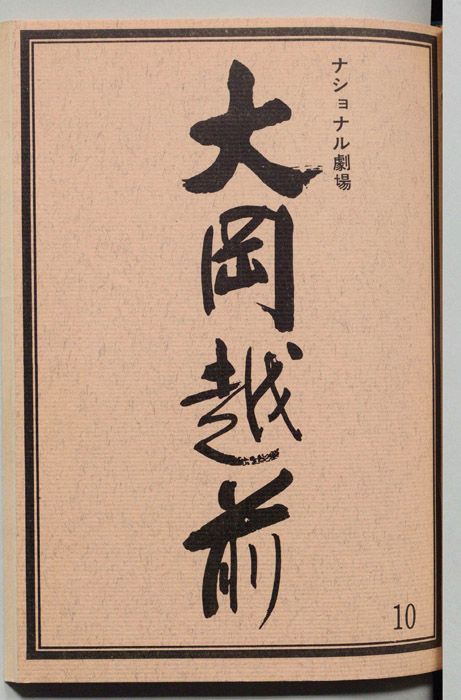 ナショナル劇場
大岡越前
10